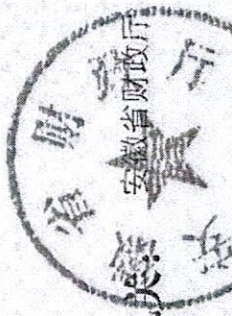 安徽省财政厅
安徽省财政厅